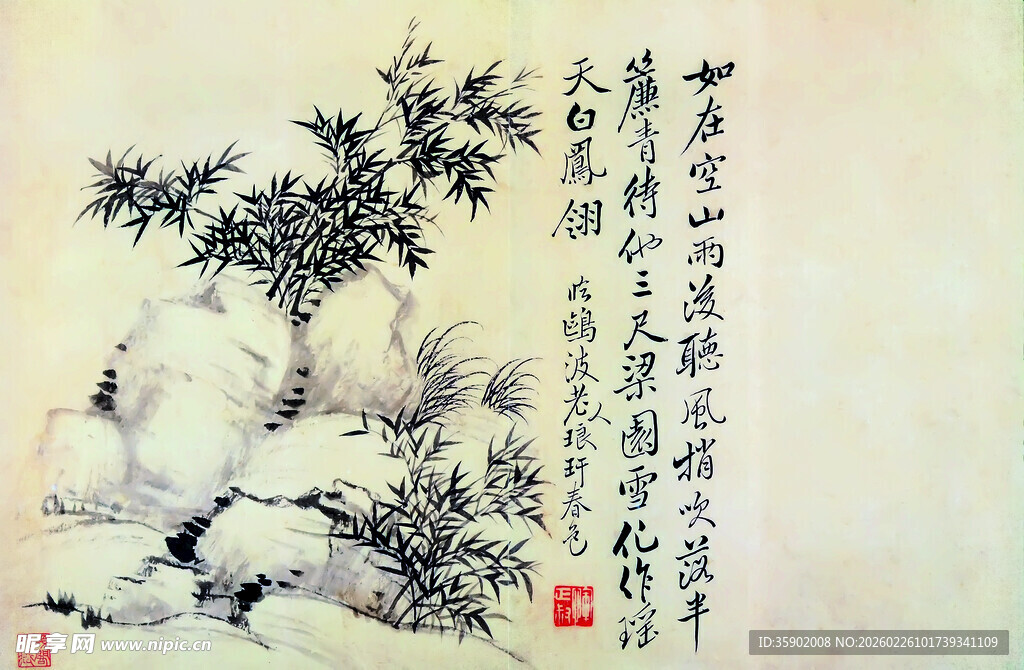 如在空山雨後聽風梢吹落半
簾青待他三尺梁園雪化作瑤
天白鳳翎
臨鷗波老人琅玕春色
正叔
昵享网 www.nipic.cn
ID:35902008 NO:20260226101739341109